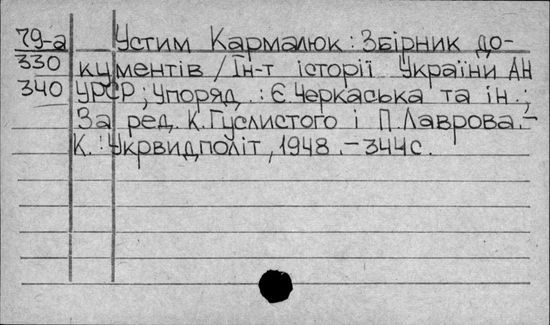 79-а Устим Кармалюк: Збірник до-
330 кументів / Ін-т історії України АН
340 УРСР; Упоряд.: Є. Черкаська та ін.;
За ред. К. Гуслистого і П. Лаврова.-
К.: Укрвидполіт, 1948.-344с.